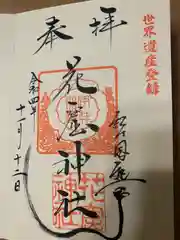 世界遺産登録
奉拝
花窟神社
令和四年
十一月十二日
花窟
神社